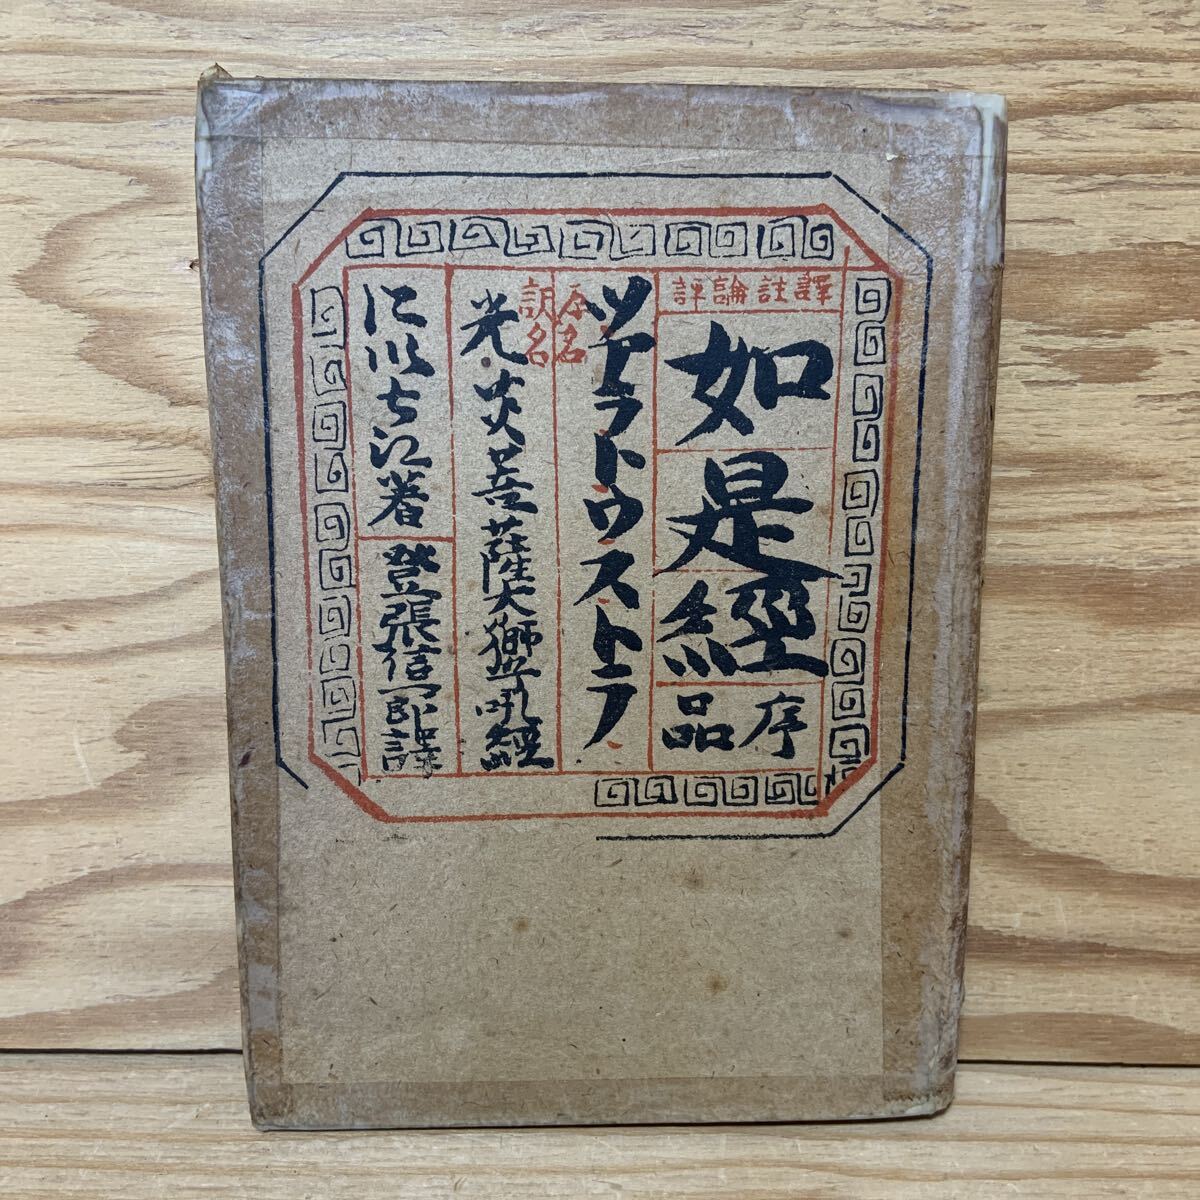 譯註論評
如是經
序品
原名
ツァラトウストラ
訳名
光炎菩薩大獅子吼經
に以ち江著
登張信一郎譯